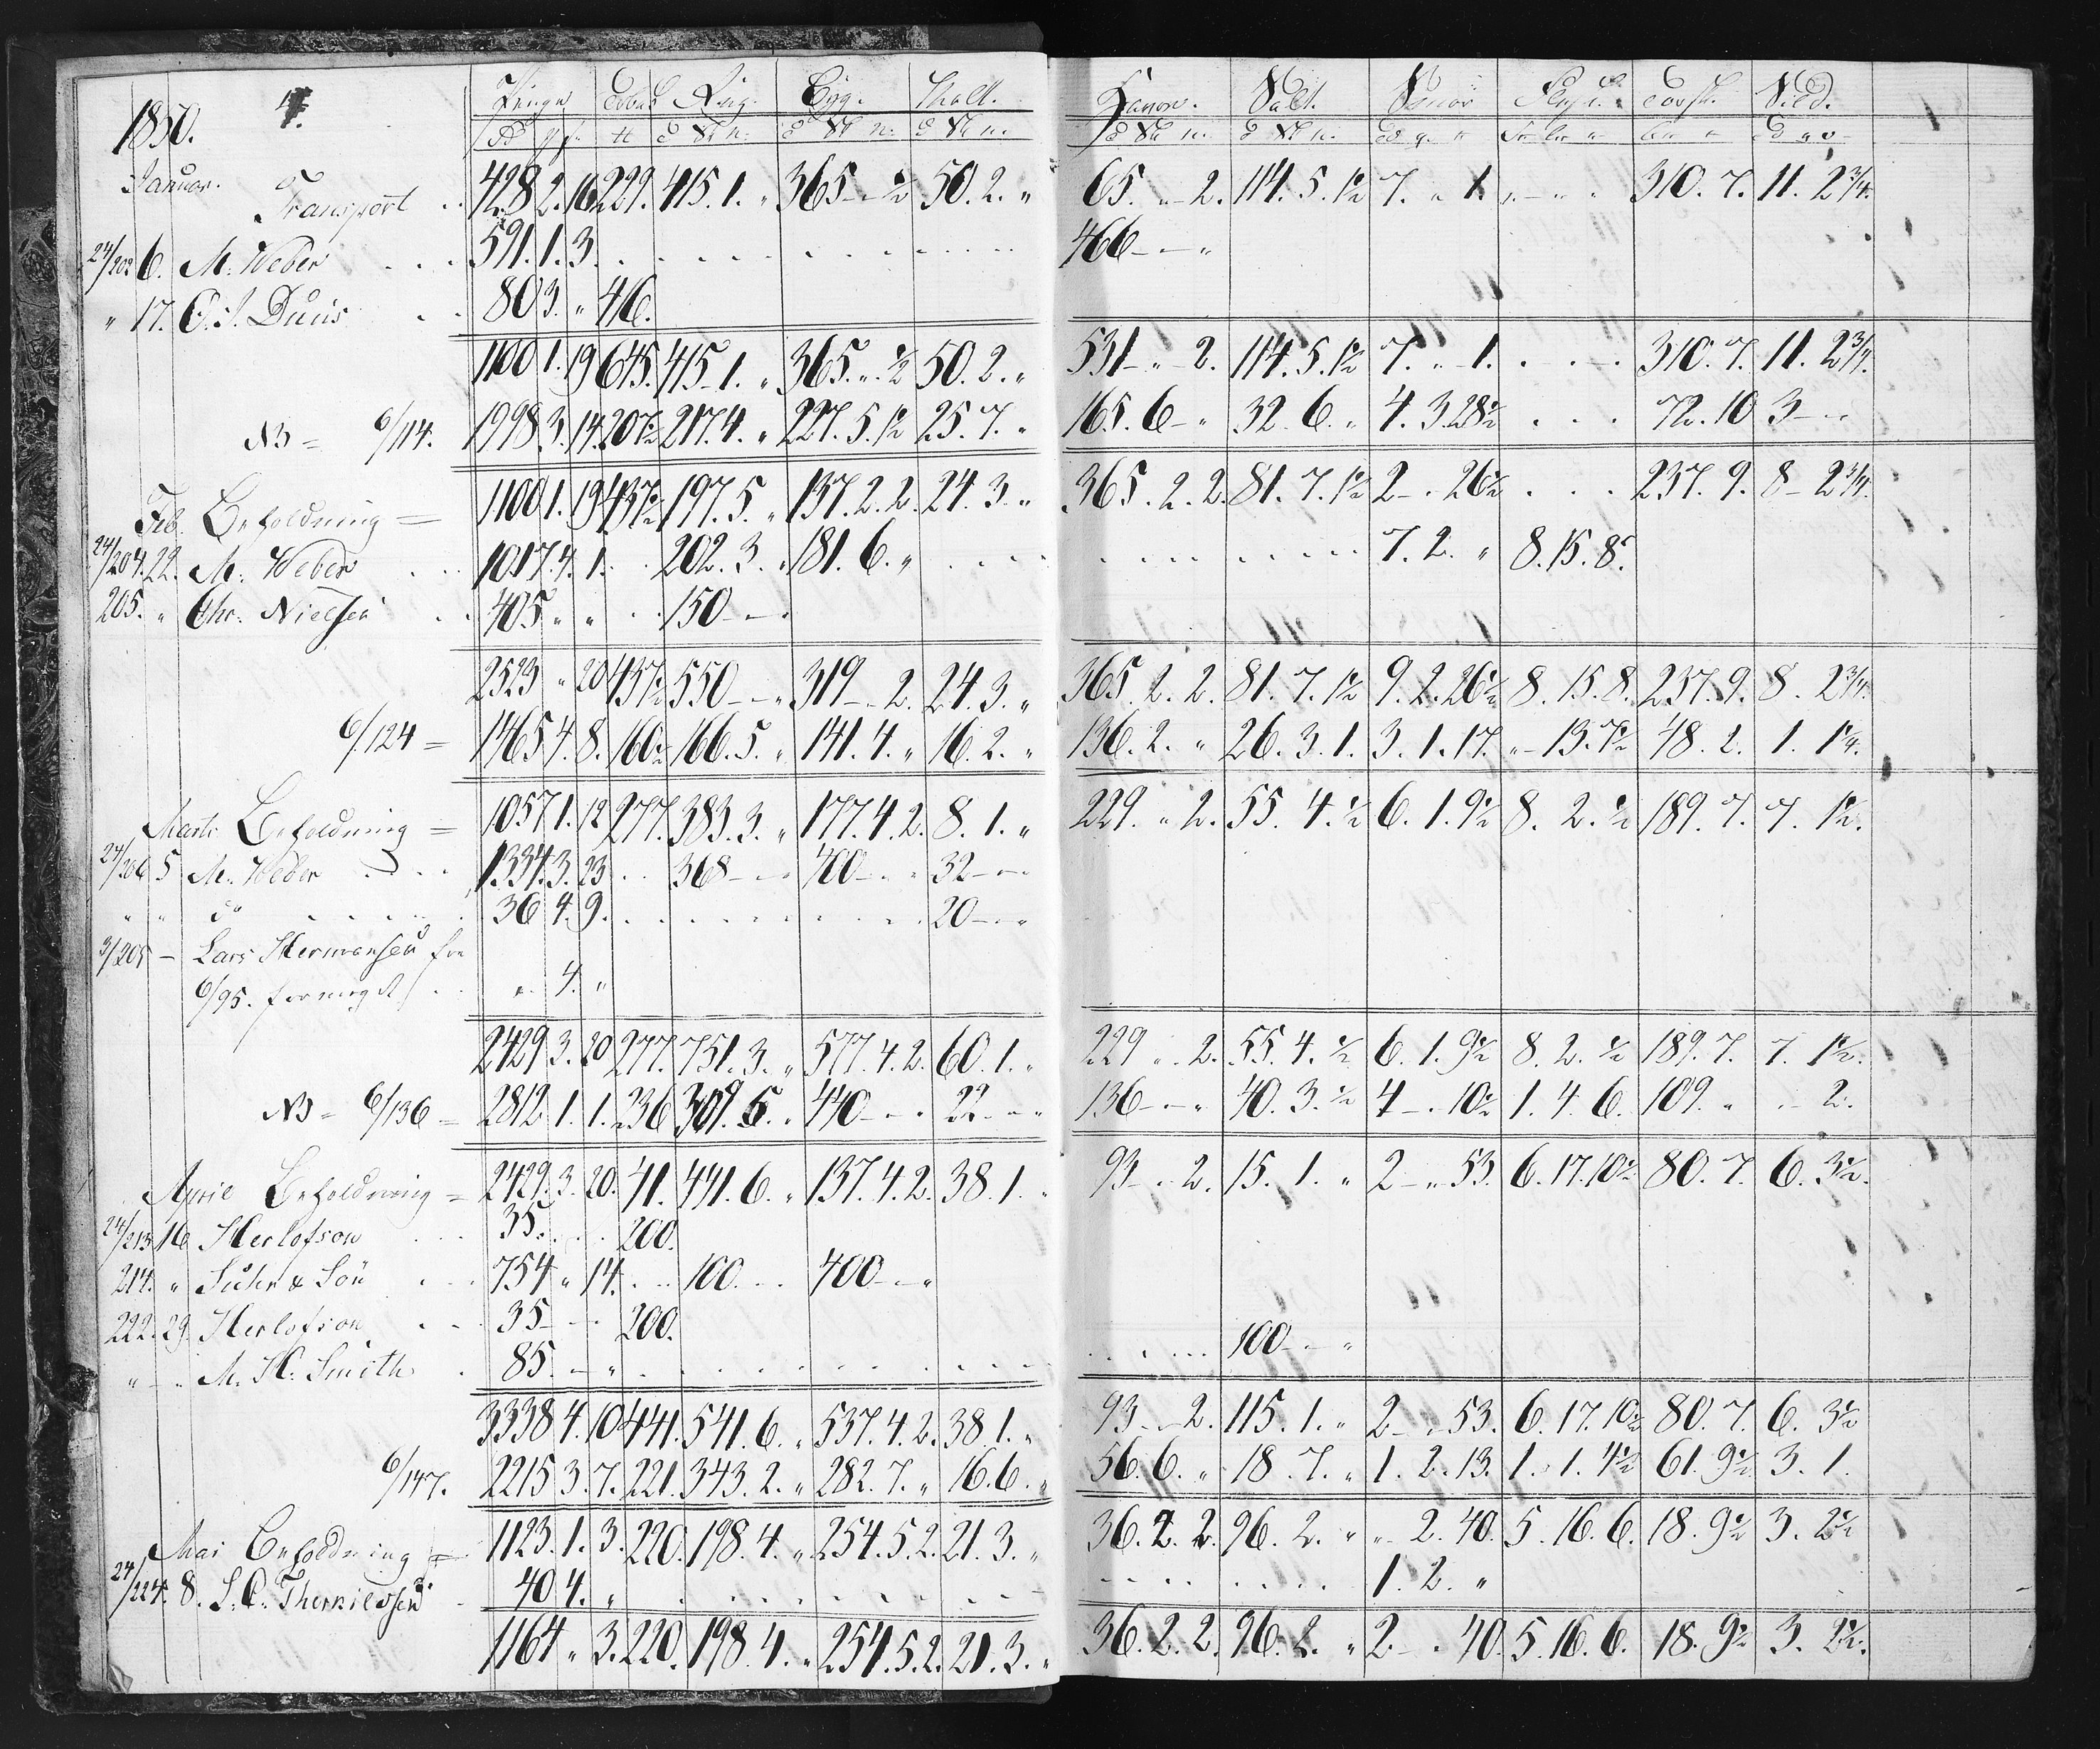 1850. 4. Penge Tobak Rug. Byg. Malt. Havre. Salt. Smør Torsk. Sild.
Januar. Transport 428 2. 16 229. 415. 1. „ 365 - „ ½ 50. 2. „ 65. „ 2. 114. 5. 1½ 7. „ 1. 310. 7. 11. 2¾.
24/203 6. M. Weber 591. 1. 3. 466 - „
„ 17. C. J. Duus 80 3. „ 416.
1100 1. 19 645. 415 1. „ 365. „ ½ 50. 2. „ 531 - „ 2. 114. 5. 1½ 7. „ 1. 310. 7. 11. 2¾.
NB = 6/114. 1998 3. 14. 207½ 217. 4. „ 227. 5. 1½ 25. 7. „ 165. 6 - „ 32. 6. „ 4. 3. 28½ 72. 10 3 -
Feb. Beholdning = 1100 1. 19 437½ 197. 5. „ 137. 2. 2. 24. 3. „ 365. 2. 2. 81. 7. 1½ 2 - 26½ 237. 9. 8 - 2¾.
24/204. 22. M. Weber 1017. 4. 1. 202. 3. „ 181. 6. „ 7. 2. „ 8. 15. 8.
205. „ Chr. Nielsen 405 „ „ 150 -
2523 „ 20 437½ 550 - „ 319 - 2. 24. 3. „ 365. 2. 2. 81. 7. 1½ 9. 2. 26½ 8. 15. 8. 237. 9. 8. 2¾.
6/124 = 1465 4. 8. 160½ 166. 5. „ 141. 4. „ 16. 2. „ 136. 2. „ 26. 3. 1. 3. 1. 17. „ - 13. 7½ 48. 2. 1. 1¼.
Marts Beholdning = 1057 1. 12 277. 383. 3. „ 177. 4. 2. 8. 1. „ 229. „ 2. 55. 4. ½ 6. 1. 9½ 8. 2. ½ 189. 7. 7. 1½.
24/206 5 M. Weber 1334. 3. 23 368 - 400 - 32 -
„ „ do 36 4. 9. 20 - „
3/205 - Lars Hermansen fra
6/95. „ 4. „
2429 3. 20 277. 751. 3. „ 577. 4. 2. 60. 1. „ 229 „ 2. 55. 4. ½ 6. 1. 9½ 8. 2. ½ 189. 7. 7. 1½.
NB = 6/136 = 2812 1. 1. 236 309. 5. „ 440 - 22 - 136 - „ 40. 3. ½ 4 - 10½ 1. 4. 6. 109. „ - 2.
April Beholdning = 2429. 3. 20. 41. 441. 6. „ 137. 4. 2. 38. 1. „ 93 - 2. 15. 1. „ 2 - „ 53. 6. 17. 10½ 80. 7. 6. 3½.
24/213 16 Herlofson 35. 200.
214. „ Suhr & Søn 754 „ 14. 100. 400 - „
222. 29. Herlofson 35 - 200.
„ - „ M. H. Smith 85. - „ 100 - „
3338 4. 10 441. 541. 6. „ 537. 4. 2. 38. 1. „ 93 - 2. 115. 1. „ 2 - „ 53. 6. 17. 10½ 80. 7. 6. 3½
6/147. 2215 3. 7. 221. 343. 2. „ 282. 7. „ 16. 6. „ 56. 6. „ 18. 7. „ 1. 2. 13. 1. 1. 4½ 61. 9½ 3. 1.
Mai Beholdning = 1123. 1. 3. 220. 198. 4. „ 254. 5. 2. 21. 3. „ 36. 2. 2. 96. 2. „ „ 2. 40. 5. 16. 6. 18. 9½ 3. 2½
24/224. 8. S. C. Therkildsen 40 4. „ 1. 2. „
1164 „ 3. 220. 198. 4. „ 254. 5. 2. 21. 3. „ 36. 2. 2. 96. 2. „ 2. - 40. 5. 16. 6. 18. 9½ 3. 2½.